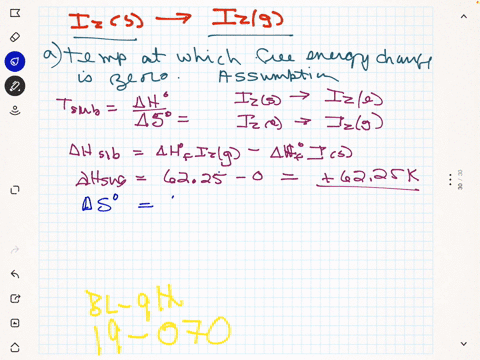 I₂(s) → I₂(g)
a) temp at which free energy change
is zero. Assumption
Tsub = ΔH°/ΔS° = I₂(s) → I₂(l)
I₂(l) → I₂(g)
ΔHsub = ΔH°f I₂(g) - ΔH°f I(s)
ΔHsub = 62.25 - 0 = +62.25K
ΔS° =
BL-9th
19-070